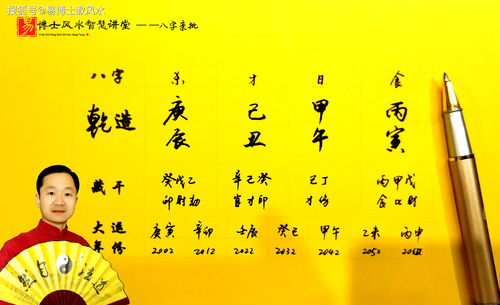 搜狐号@易博士教风水
易 博士风水智慧讲堂 ——八字亲批
八字 杀 才 日 食
乾造 庚 己 甲 丙
辰 丑 午 寅
藏干 癸戊乙 辛己癸 己丁 丙甲戊
印财劫 官才印 才伤 食口财
大运 庚寅 辛卯 壬辰 癸巳 甲午 乙未 丙申
年份 2002 2012 2022 2032 2042 2052
然自法道